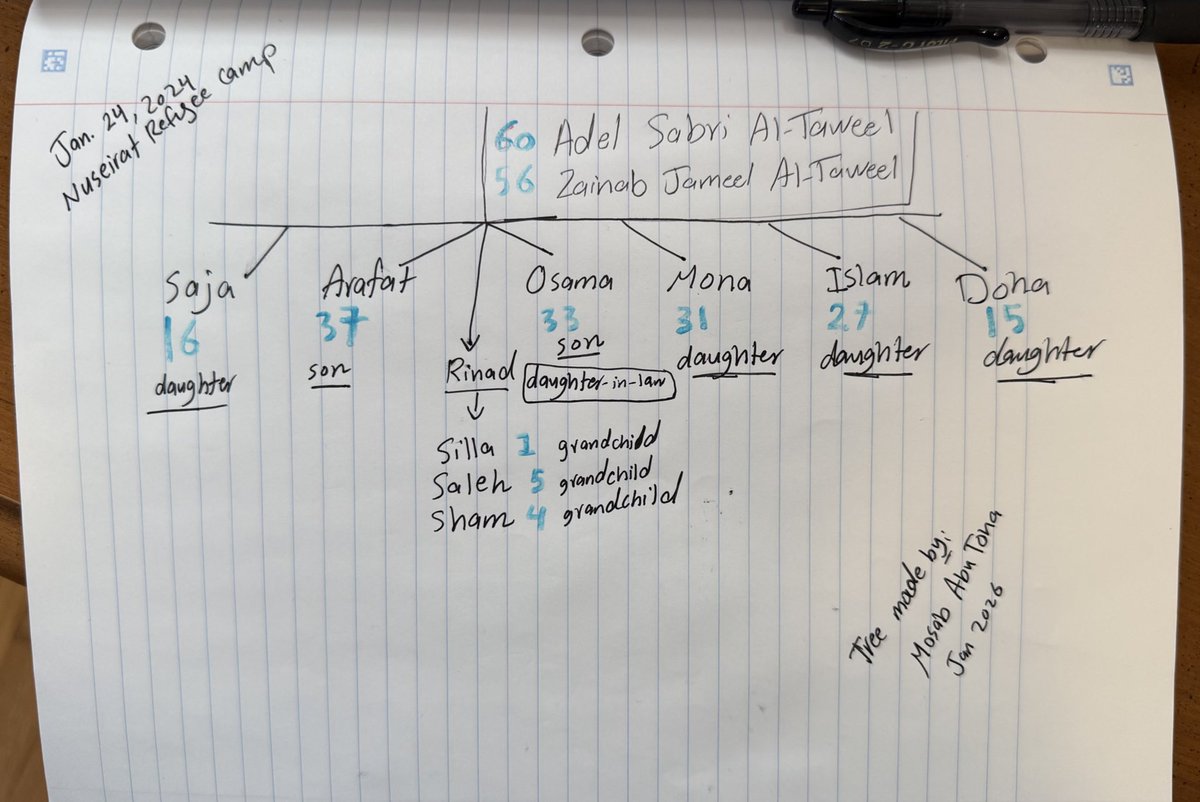 Jan. 24, 2024
Nuseirat Refugee Camp
60 Adel Sabri Al-Taweel
56 Zainab Jameel Al-Taweel
Saja
16
daughter
Arafat
37
son
Osama
33
son
Mona
31
daughter
Islam
27
daughter
Doha
15
daughter
Rinad daughter-in-law
Silla 1 grandchild
Saleh 5 grandchild
Sham 4 grandchild
Tree made by:
Mosab Abu Toha
Jan 2026